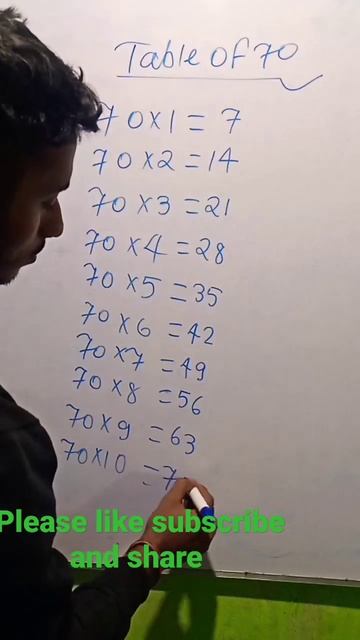 Table of 70
70 x 1 = 7
70 x 2 = 14
70 x 3 = 21
70 x 4 = 28
70 x 5 = 35
70 x 6 = 42
70 x 7 = 49
70 x 8 = 56
70 x 9 = 63
70 x 10 = 7
Please like subscribe
and share